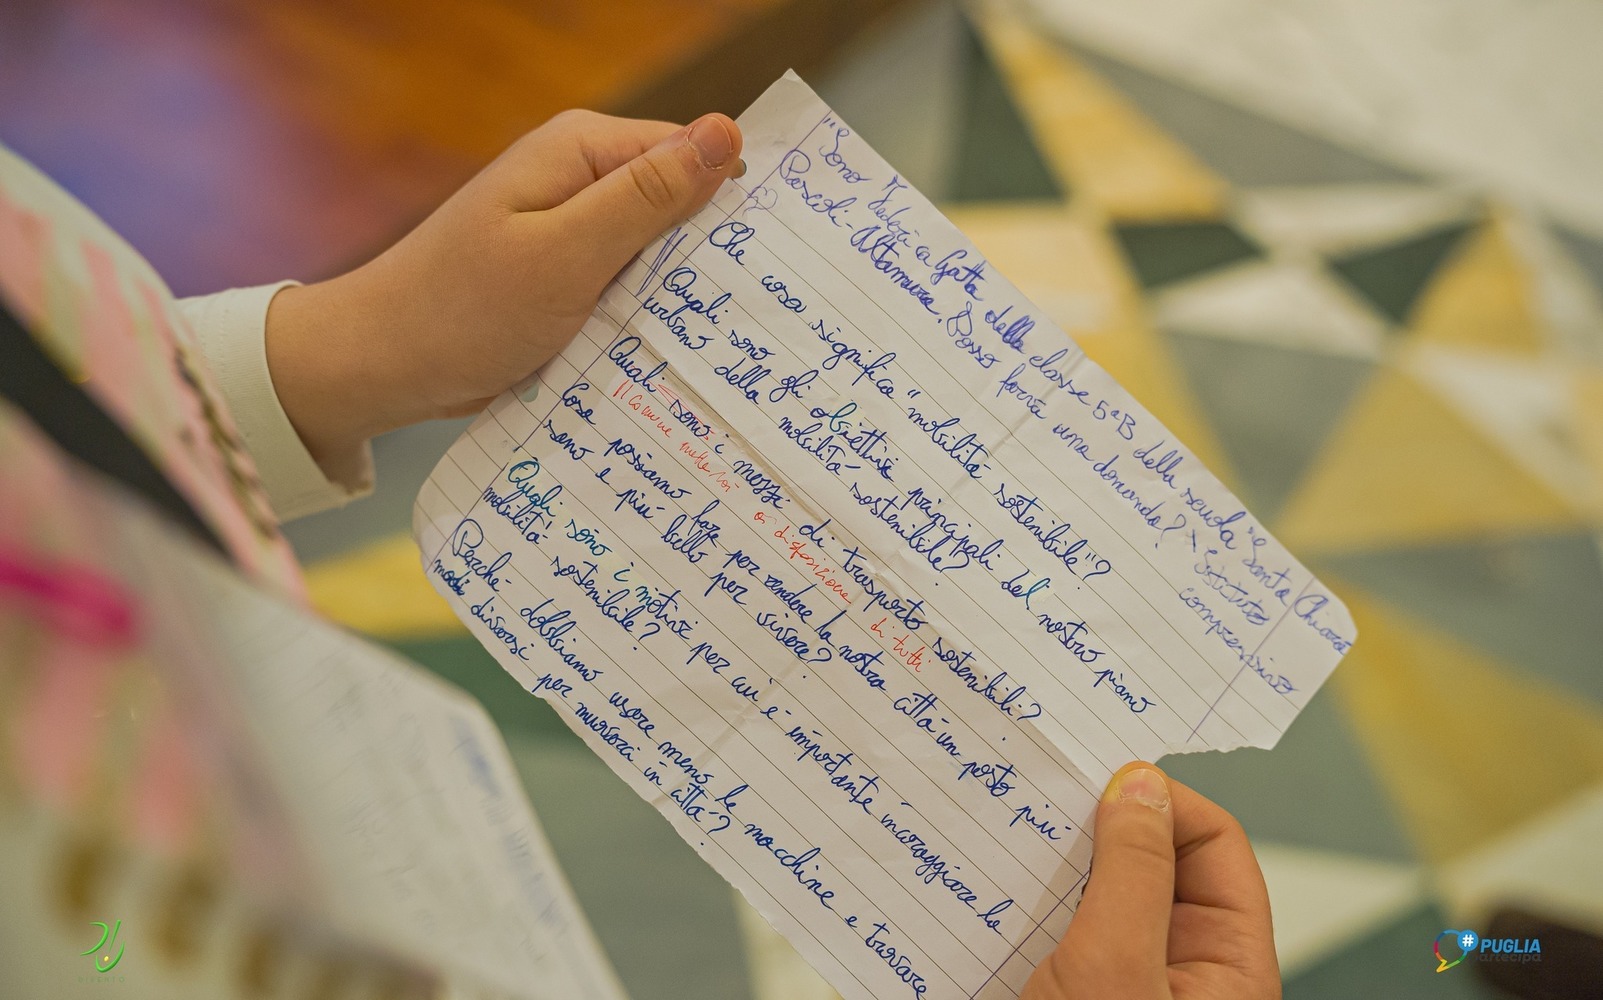 "Sono Federica Gatta della classe 5ªB della scuola "Santa Chiara
Pascoli-Altamura. Posso farvi una domanda?
Istituto
comprensivo
Che cosa significa "mobilità sostenibile"?
Quali sono gli obiettivi principali del nostro piano
urbano della mobilità sostenibile?
Quali sono i mezzi di trasporto sostenibili?
Il Comune mette
a disposizione
di tutti
Cosa possiamo fare per rendere la nostra città un posto più
sano e più bello per vivere?
Quali sono i motivi per cui è importante incoraggiare la
mobilità sostenibile?
Perché dobbiamo usare meno le macchine e trovare
modi diversi per muoverci in città?
#PUGLIA
partecipa